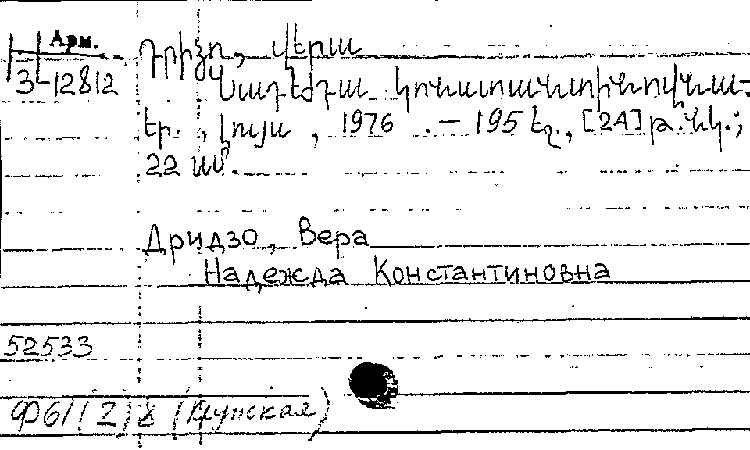 Арм.
3-12812
Դրիձո, Վերա
Նադեժդա Կոնստանտինովնա.-
Եր., Լույս, 1976. – 195 էջ., [24] թ. նկ.;
22 սմ.
Дридзо, Вера
Надежда Константиновна
52533
Ф61(2)8 (Крупская)